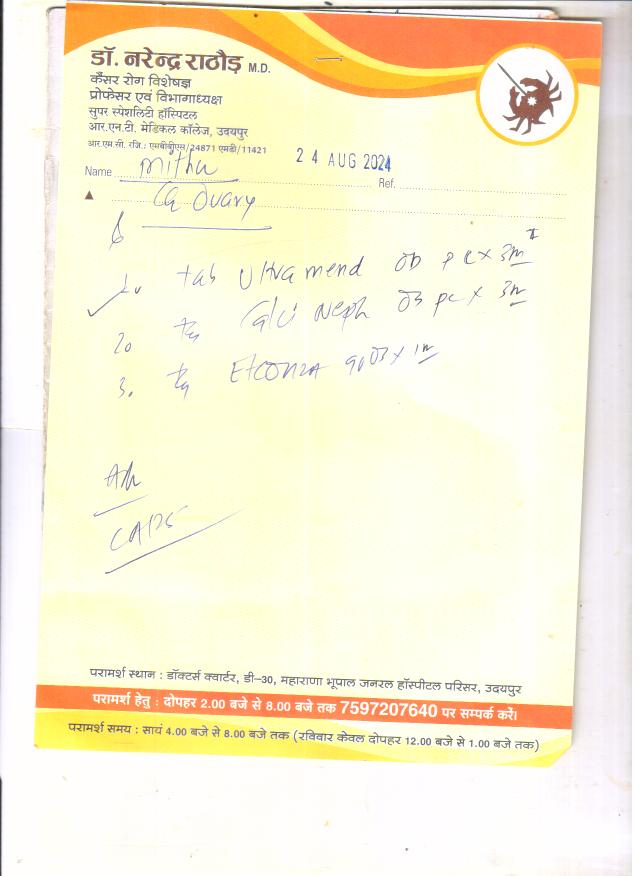 डॉ. नरेन्द्र राठौड़ M.D.
कैंसर रोग विशेषज्ञ
प्रोफेसर एवं विभागाध्यक्ष
सुपर स्पेशलिटी हॉस्पिटल
आर.एन.टी. मेडिकल कॉलेज, उदयपुर
आर.एम.सी. रजि.: एमबीबीएस/24871 एमडी/11421
24 AUG 2024
Name Mithu Ref.
Ca Ovary
1. tab Ultramend OD pc x 3m
2. Glu Neph pc x 3m
3. x 1m
परामर्श स्थान : डॉक्टर्स क्वार्टर, डी-30, महाराणा भूपाल जनरल हॉस्पीटल परिसर, उदयपुर
परामर्श हेतु : दोपहर 2.00 बजे से 8.00 बजे तक 7597207640 पर सम्पर्क करें।
परामर्श समय : सायं 4.00 बजे से 8.00 बजे तक (रविवार केवल दोपहर 12.00 बजे से 1.00 बजे तक)